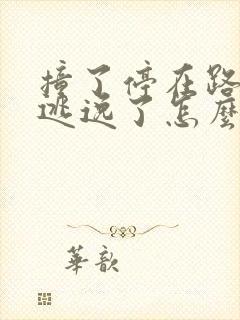 撞了停在路
逃逸了怎麼
華歆